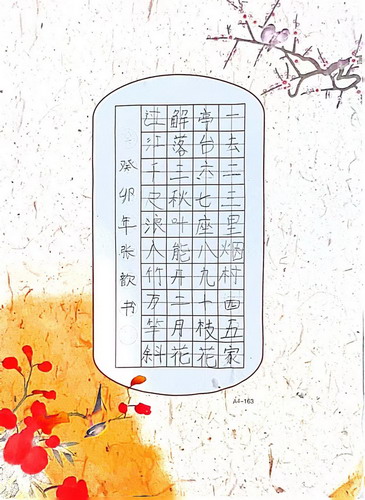 一去二三里烟村四五家
亭台六七座八九十枝花
解落三秋叶能开二月花
过江千尺浪入竹万竿斜
癸卯年张歆书
A4-163